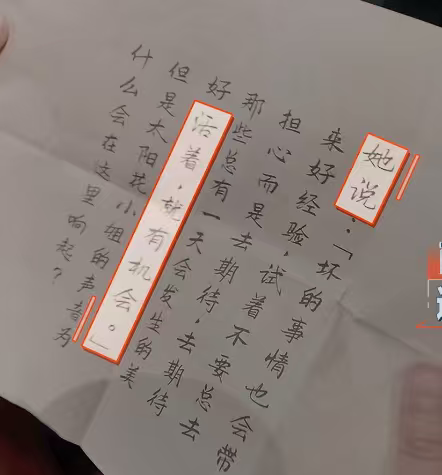 她说：「坏的事情也会带
来好经验，试着不要总去
担心而是去期待，去期待
那些总有一天会发生的美
好活着，就有机会。」
但是太阳花小姐的声音为
什么会在这里响起？